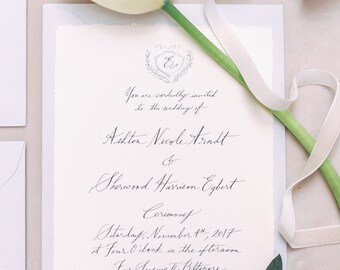 E
You are cordially invited
to the wedding of
Ashton Nicole Arndt
&
Sherwood Harrison Egbert
Ceremony
Saturday, November 4th, 2017
at Four O'clock in the afternoon